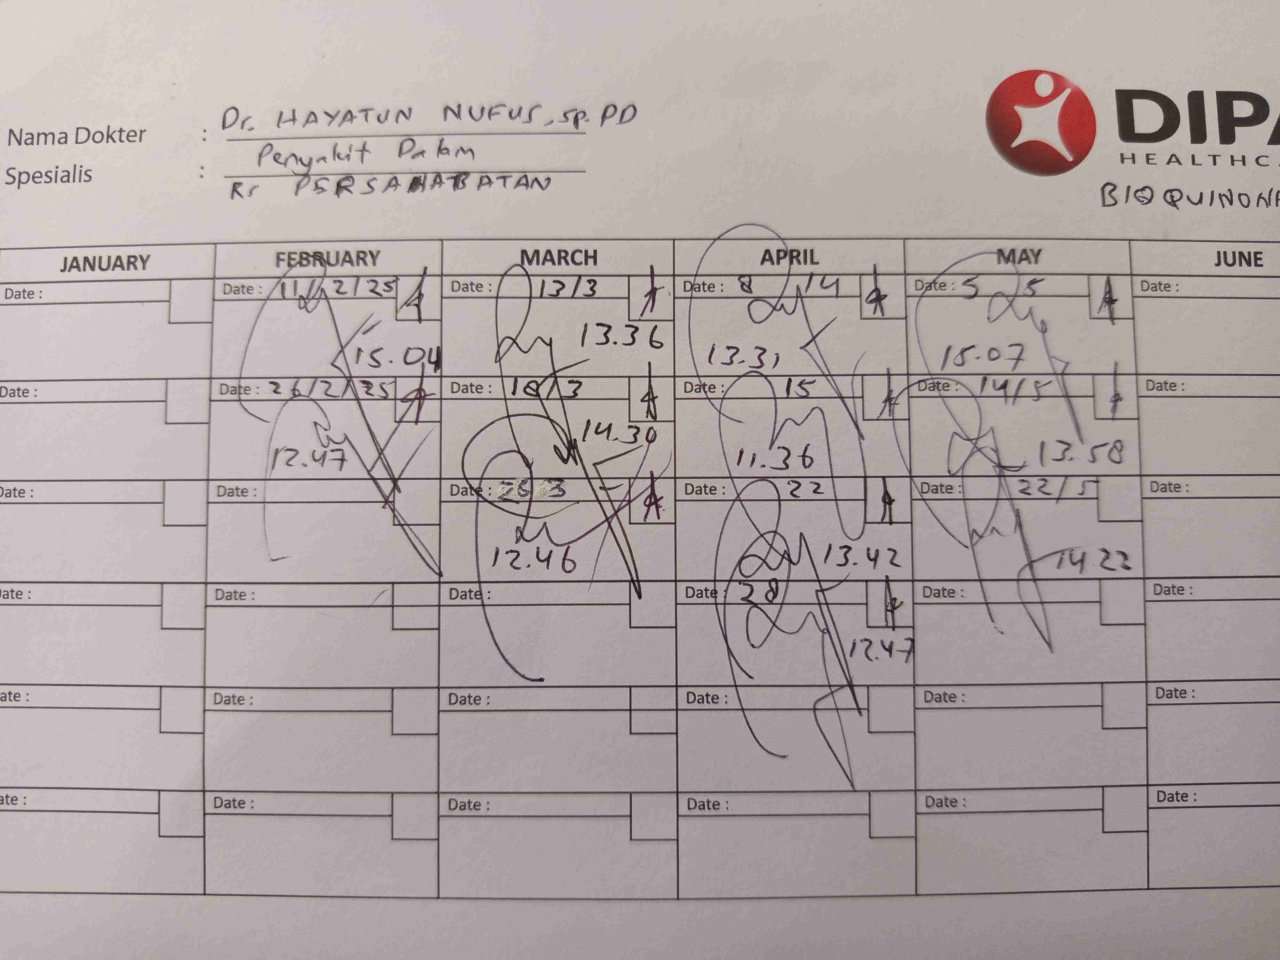 Nama Dokter : Dr. HAYATUN NUFUS, Sp. PD
Spesialis : Penyakit Dalam
RS PERSAHABATAN
DIPA
HEALTHCA
BIOQUINONE
JANUARY FEBRUARY MARCH APRIL MAY JUNE
Date : Date : 11/2/25 Date : 13/3 Date : 8 14 Date : 5 5 Date :
15.04 13.36 13.31 15.07
Date : Date : 26/2/25 Date : 18/3 Date : 15 Date : 14/5 Date :
12.47 14.30 11.36 13.58
Date : Date : Date : 26 3 Date : 22 Date : 22/5 Date :
12.46 13.42 14.22
Date : Date : Date : Date : 28 Date : Date :
12.47
Date : Date : Date : Date : Date : Date :
Date : Date : Date : Date : Date : Date :